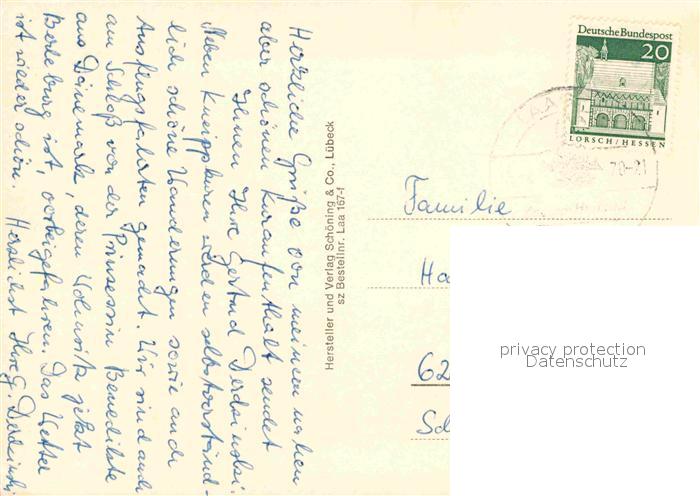 Herzliche Grüße von meinem nahen
aber schönen Kuraufenthalt sendet
Ihnen Ihre Gertrud
Neben Kneippkuren werden selbstverständ-
lich schöne Wanderungen sowie auch
Ausflugsfahrten gemacht. Wir sind auch
am Schloß von der Prinzessin Benedikte
aus Dänemark, deren Wohnsitz jetzt
Berleburg ist, vorbeigefahren. Das Wetter
ist wieder schön. Herzlichst Ihre G.
Hersteller und Verlag Schöning & Co., Lübeck
sz Bestellnr. Laa 167-f
Deutsche Bundespost
20
LORSCH/HESSEN
LAA
-21
Familie
Ha
62
Sc
privacy protection
Datenschutz